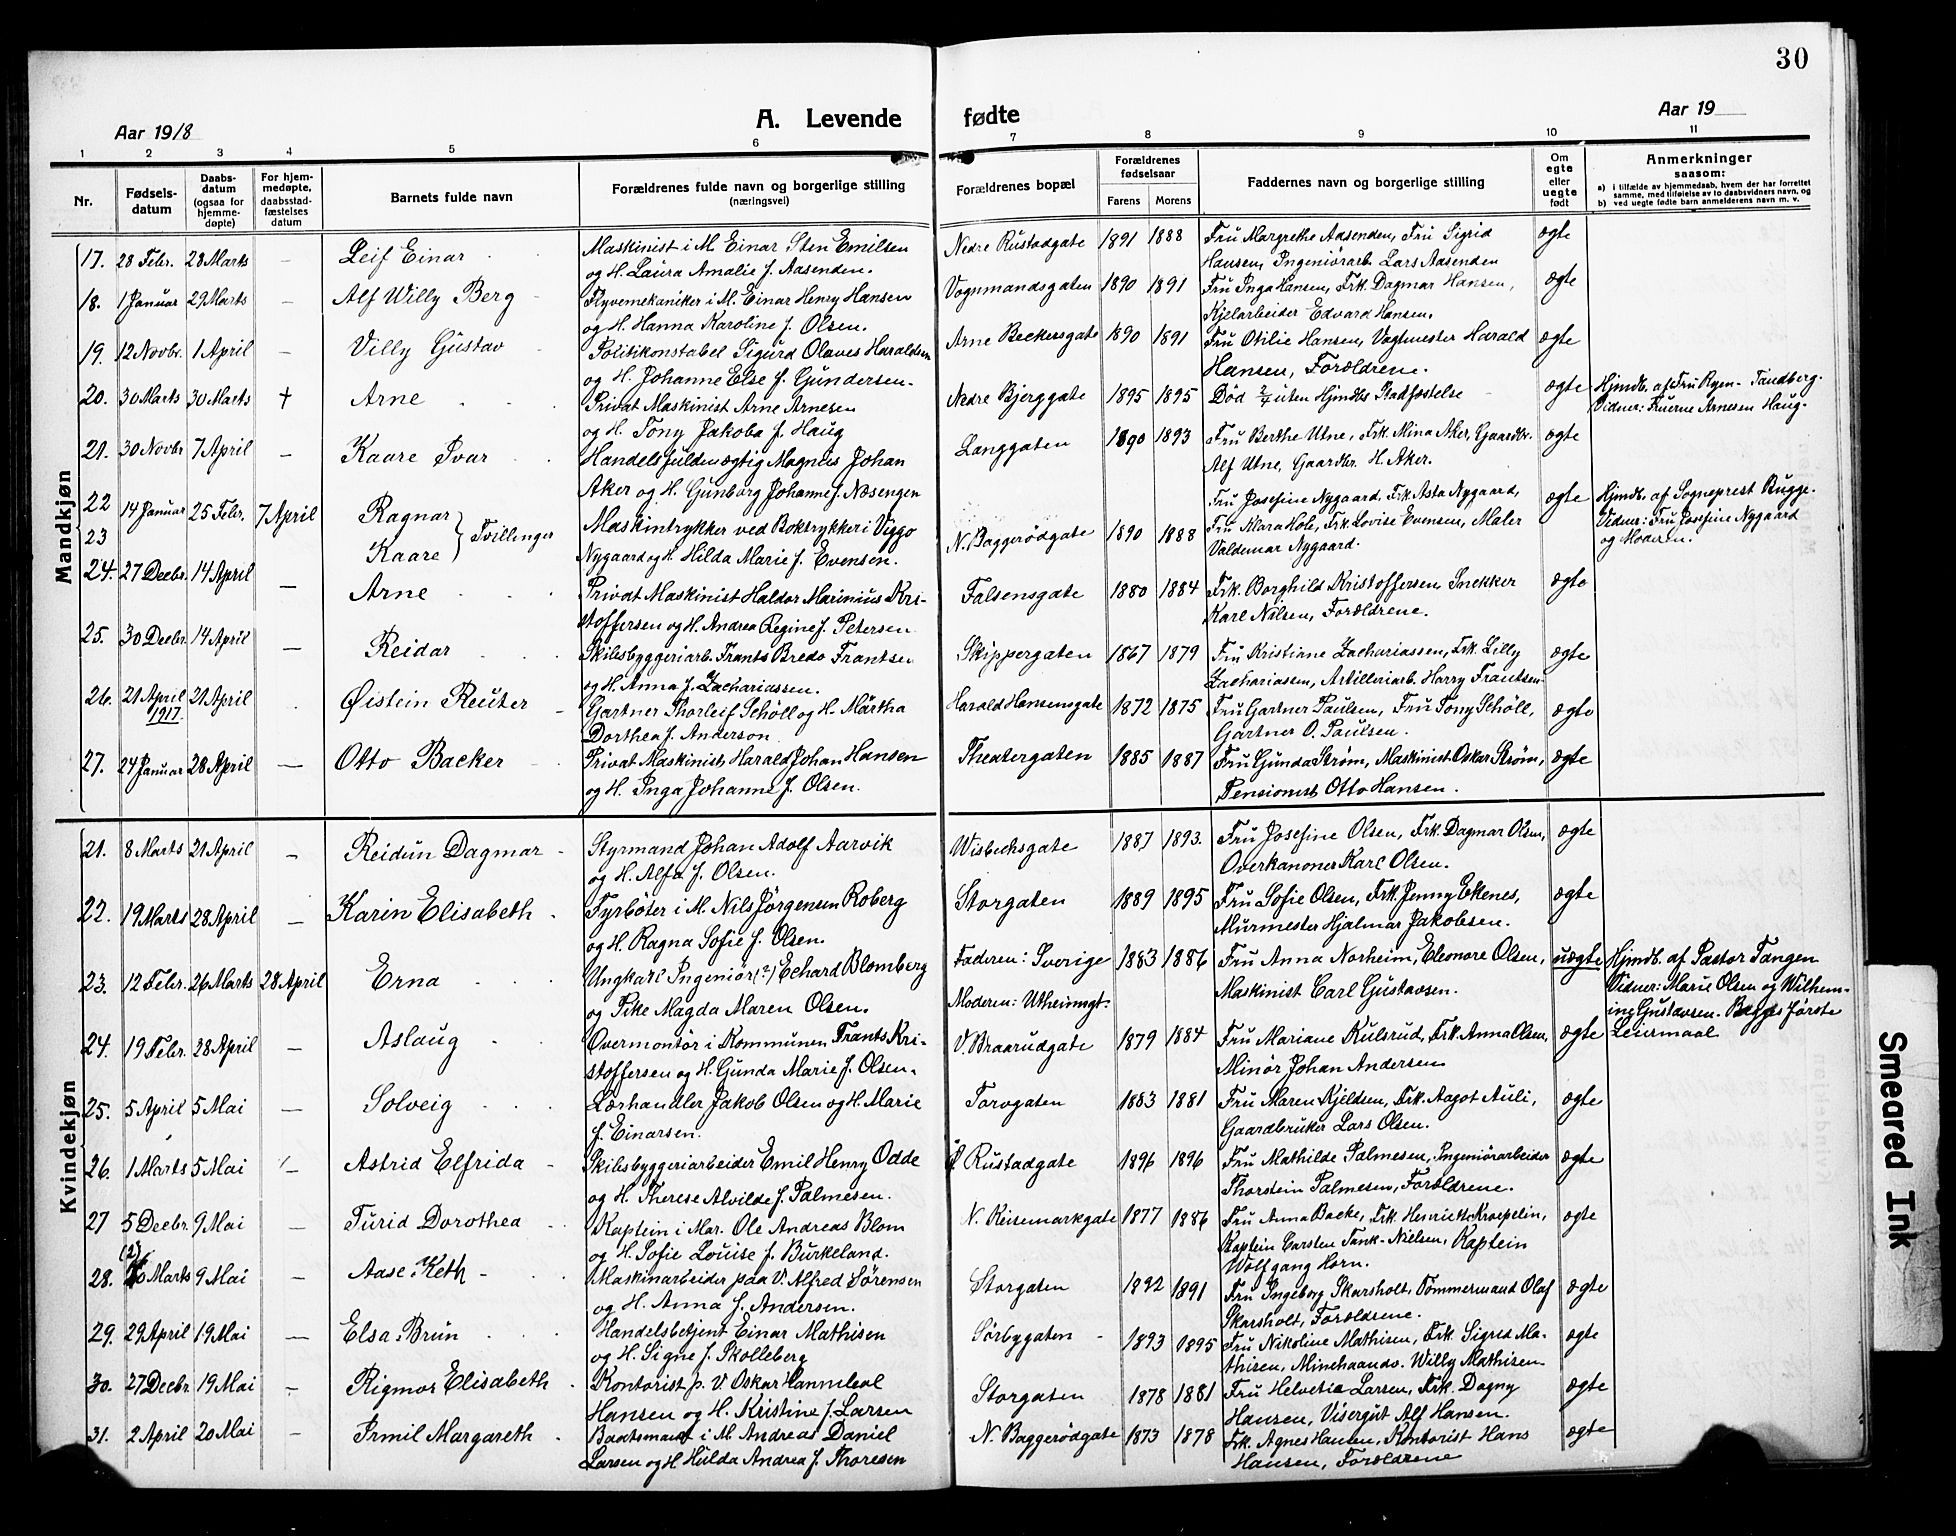 30
Aar 1918
A. Levende fødte
Aar 19
1 2 3 4 5 6 7 8 9 10 11
Nr.
Fødsels-datum
Daabs-datum (ogsaa for hjemme-døpte)
For hjem-medøpte, daabsstad-fæstelses datum
Barnets fulde navn
Forældrenes fulde navn og borgerlige stilling (næringsvei)
Forældrenes bopæl
Forældrenes fødselsaar
Farens Morens
Faddernes navn og borgerlige stilling
Om egte eller uegte født
Anmerkninger saasom:
a) i tilfælde av hjemmedaab, hvem der har forrettet samme, med tilføielse av to daabsvidners navn, og
b) ved uegte fødte barn anmelderens navn m. v.
Mandkjøn
17. 28 Febr. 28 Marts – Leif Einar Maskinist i M. Einar Sten Emilsen Nedre Rustadgate 1891 1888 Fru Margrethe Aasenden, Fru Sigrid ægte
og H. Laura Amalie f. Aasenden. Hansen, Ingeniørarb. Lars Aasenden
18. 1 Januar 29 Marts – Alf Willy Berg Flyvemekaniker i M. Einar Henry Hansen Vognmandsgaten 1890 1891 Fru Inga Hansen, Frk. Dagmar Hansen, ægte
og H. Hanna Karoline f. Olsen. Kjelarbeider Edvard Hansen.
19. 12 Novbr. 1 April – Villy Gustav Politikonstabel Sigurd Olaves Haraldsen Arne Beckersgate 1890 1891 Fru Otilie Hansen, Vagtmester Harald ægte
og H. Johanne Else f. Gundersen. Hansen, Forældrene.
20. 30 Marts 30 Marts † Arne Privat Maskinist Arne Arnesen Nedre Bjerggate 1895 1895 Død 2/4 uten Hjmdbs Stadfæstelse ægte Hjmdb. af Fru Ryen-Tandberg.
og H. Tony Jakoba f. Haug Vidner: Fruerne Arnesen Haug.
21. 30 Novbr 7 April – Kaare Ivar Handelsfuldmægtig Magnus Johan Langgaten 1890 1893 Fru Berthe Utne, Frk. Mina Aker, Gaardbr. ægte
Aker og H. Gunborg Johanne f. Næsengen Alf Utne, Gaardbr. H. Aker.
22 14 Januar 25 Febr. 7 April Ragnar } Tvillinger Maskintrykker ved Boktrykkeri Viggo N. Baggerødgate 1890 1888 Fru Josefine Nygaard, Frk. Asta Nygaard, ægte Hjmdb. af Sogneprest Bugge.
23 Kaare Nygaard og H. Hilda Marie f. Evensen. Fru Mara Hole, Frk. Lovise Evensen, Maler Vidner: Fru Josefine Nygaard
Valdemar Nygaard. og Moderen.
24. 27 Decbr. 14 April – Arne Privat Maskinist Haldor Marinius Kri- Falsensgate 1880 1884 Frk. Borghild Kristoffersen, Snekker ægte
stoffersen og H. Andrea Regine f. Petersen Karl Nilsen, Forældrene.
25. 30 Decbr. 14 April – Reidar Skibsbyggeriarb. Frants Bredo Frantsen Skippergaten 1867 1879 Fru Kristiane Zachariassen, Frk. Lilly ægte
og H. Anna f. Zachariassen. Zachariassen, Artilleriarb. Harry Frantsen
26. 21 April 1917. 21 April Øistein Reuter – Gartner Thorleif Schöll og H. Märtha Harald Hansensgate 1872 1875 Fru Gartner Paulsen, Fru Tony Schöll, ægte
Dorthea f. Anderson Gartner O. Paulsen.
27. 24 Januar 28 April – Otto Backer Privat Maskinist Harald Johan Hansen Theatergaten 1885 1887 Fru Gunda Strøm, Maskinist Oskar Strøm, ægte
og H. Inga Johanne f. Olsen. Pensionist Otto Hansen.
Kvindekjøn
21. 8 Marts 21 April – Reidun Dagmar – Styrmand Johan Adolf Aarvik Wisbechsgate 1887 1893. Fru Josefine Olsen, Frk. Dagmar Olsen, ægte
og H. Alfa f. Olsen. Overkanoner Karl Olsen.
22. 19 Marts 28 April – Karin Elisabeth Fyrbøter i M. Nils Jörgensen Roberg Storgaten 1889 1895 Fru Sofie Olsen, Frk. Jenny Ekenes, ægte
og H. Ragna Sofie f. Olsen. Murmester Hjalmar Jakobsen.
23. 12 Febr. 26 Marts 28 April Erna Ungkarl Ingeniör (?) Echard Blomberg Faderen: Sverige 1883 1886 Fru Anna Norheim, Eleonore Olsen, uægte Hjmdb. af Pastor Tangen
og Pike Magda Maren Olsen. Moderen: Utheimngt. Maskinist Carl Gustavsen. Vidner: Marie Olsen og Wilhem-
ine Gustavsen. Begges første
Leiermaal
24. 19 Febr. 28 April – Aslaug Overmontör i Kommunen Frants Kri- V. Braarudgate 1879 1884 Fru Mariane Kulsrud, Frk. Anna Olsen, ægte
stoffersen og H. Gunda Marie f. Olsen. Minör Johan Andersen
25. 5 April 5 Mai – Solveig Lærhandler Jakob Olsen og H. Marie Torvgaten 1883 1881 Fru Maren Kjeldsen, Frk. Aagot Auli, ægte
f. Einarsen. Gaardbruker Lars Olsen.
26. 1 Marts 5 Mai – Astrid Elfrida – Skibsbyggeriarbeider Emil Henry Odde Rustadgate 1896 1896 Fru Mathilde Palmesen, Ingeniörarbeider ægte
og H. Therese Alvilde f. Palmesen. Thorstein Palmesen, Forældrene.
27 5 Decbr. 9 Mai – Turid Dorothea Kaptein i Mar. Ole Andreas Blom N. Keisemarkgate 1877 1886 Fru Anna Backe, Frk. Henriette Kræpelin, ægte
og H. Sofie Louise f. Burkeland. Kaptein Carsten Tank-Nielsen, Kaptein
Wolfgang Horn.
28. Marts 9 Mai – Aase Keth – Maskinarbeider paa V. Alfred Sörensen Storgaten 1892 1891 Fru Ingeborg Skarsholt, Tömmermand Olaf ægte
og H. Anna f. Andersen. Skarsholt, Forældrene.
29. 29 April 19 Mai – Elsa Brun Handelsbetjent Einar Mathisen Sörbygaten 1893 1895 Fru Nikoline Mathisen, Frk. Sigrid Ma- ægte
og H. Signe f. Skolleberg thisen, Minehaandv. Willy Mathisen
30. 27 Decbr. 19 Mai – Rigmor Elisabeth Kontorist p. V. Oskar Hannibal Storgaten 1878 1881 Fru Helvetia Larsen, Frk. Dagny ægte
Hansen og H. Kristine f. Larsen Hansen, Visergut Alf Hansen.
31. 2 April 20 Mai – Irmil Margareth Baatsmand i M Andreas Daniel N. Baggerödgate 1873 1878 Frk. Agnes Hansen, Kontorist Hans ægte
Larsen og H Hulda Andrea f. Thoresen Hansen, Forældrene
Smeared Ink